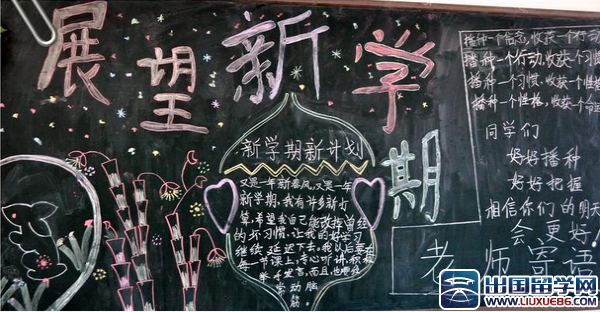 展望新学期
新学期新计划
又是一年新春风,又是一年
新学期,我有许多新打
算,希望我自己能改掉曾经
的坏习惯,让我的好学习
继续延迟下去。我以后要在
每一节课上,专心听讲,积极
举手发言,而且也
劳动脑
筋
播种一个信念,收获一个行动
播种一个行动,收获一个习惯
播种一个习惯,收获一个性格
播种一个性格,收获一个命运
同学们
好好播种
好好把握
相信你们的明天
会更好!
老师寄语
出国留学网
www.liuxue86.com